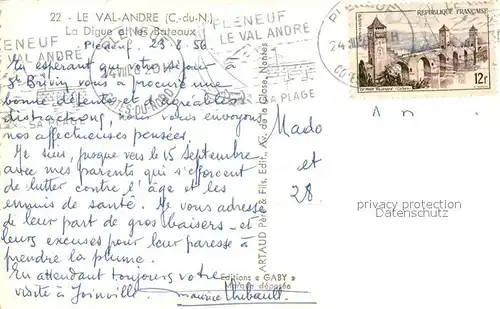 22 - LE VAL-ANDRE (C.-du-N.)
La Digue et les Bateaux
Pléneuf, 23-8-56
En espérant que votre séjour
St Brieuc vous a procuré une
bonne détente et d'agréables
distractions, nous vous envoyons
nos affectueuses pensées.
Je suis, jusque vers le 15 Septembre
avec mes parents qui s'efforcent
de lutter contre l'âge et les
ennuis de santé. Je vous adresse
de leur part de gros baisers et
leurs excuses pour leur paresse à
prendre la plume.
En attendant toujours votre
visite à Joinville.
Maurice Thibault.
Editions « GABY »
Marque déposée
ARTAUD Père & Fils, Edit., Av. de la Close, Nantes
PLENEUF
LE VAL ANDRÉ
SA PLAGE
PLENEUF
LE VAL ANDRÉ
SA PLAGE
CÔTES-DU-NORD
REPUBLIQUE FRANÇAISE
12F
Mado
et
28.
privacy protection
Datenschutz